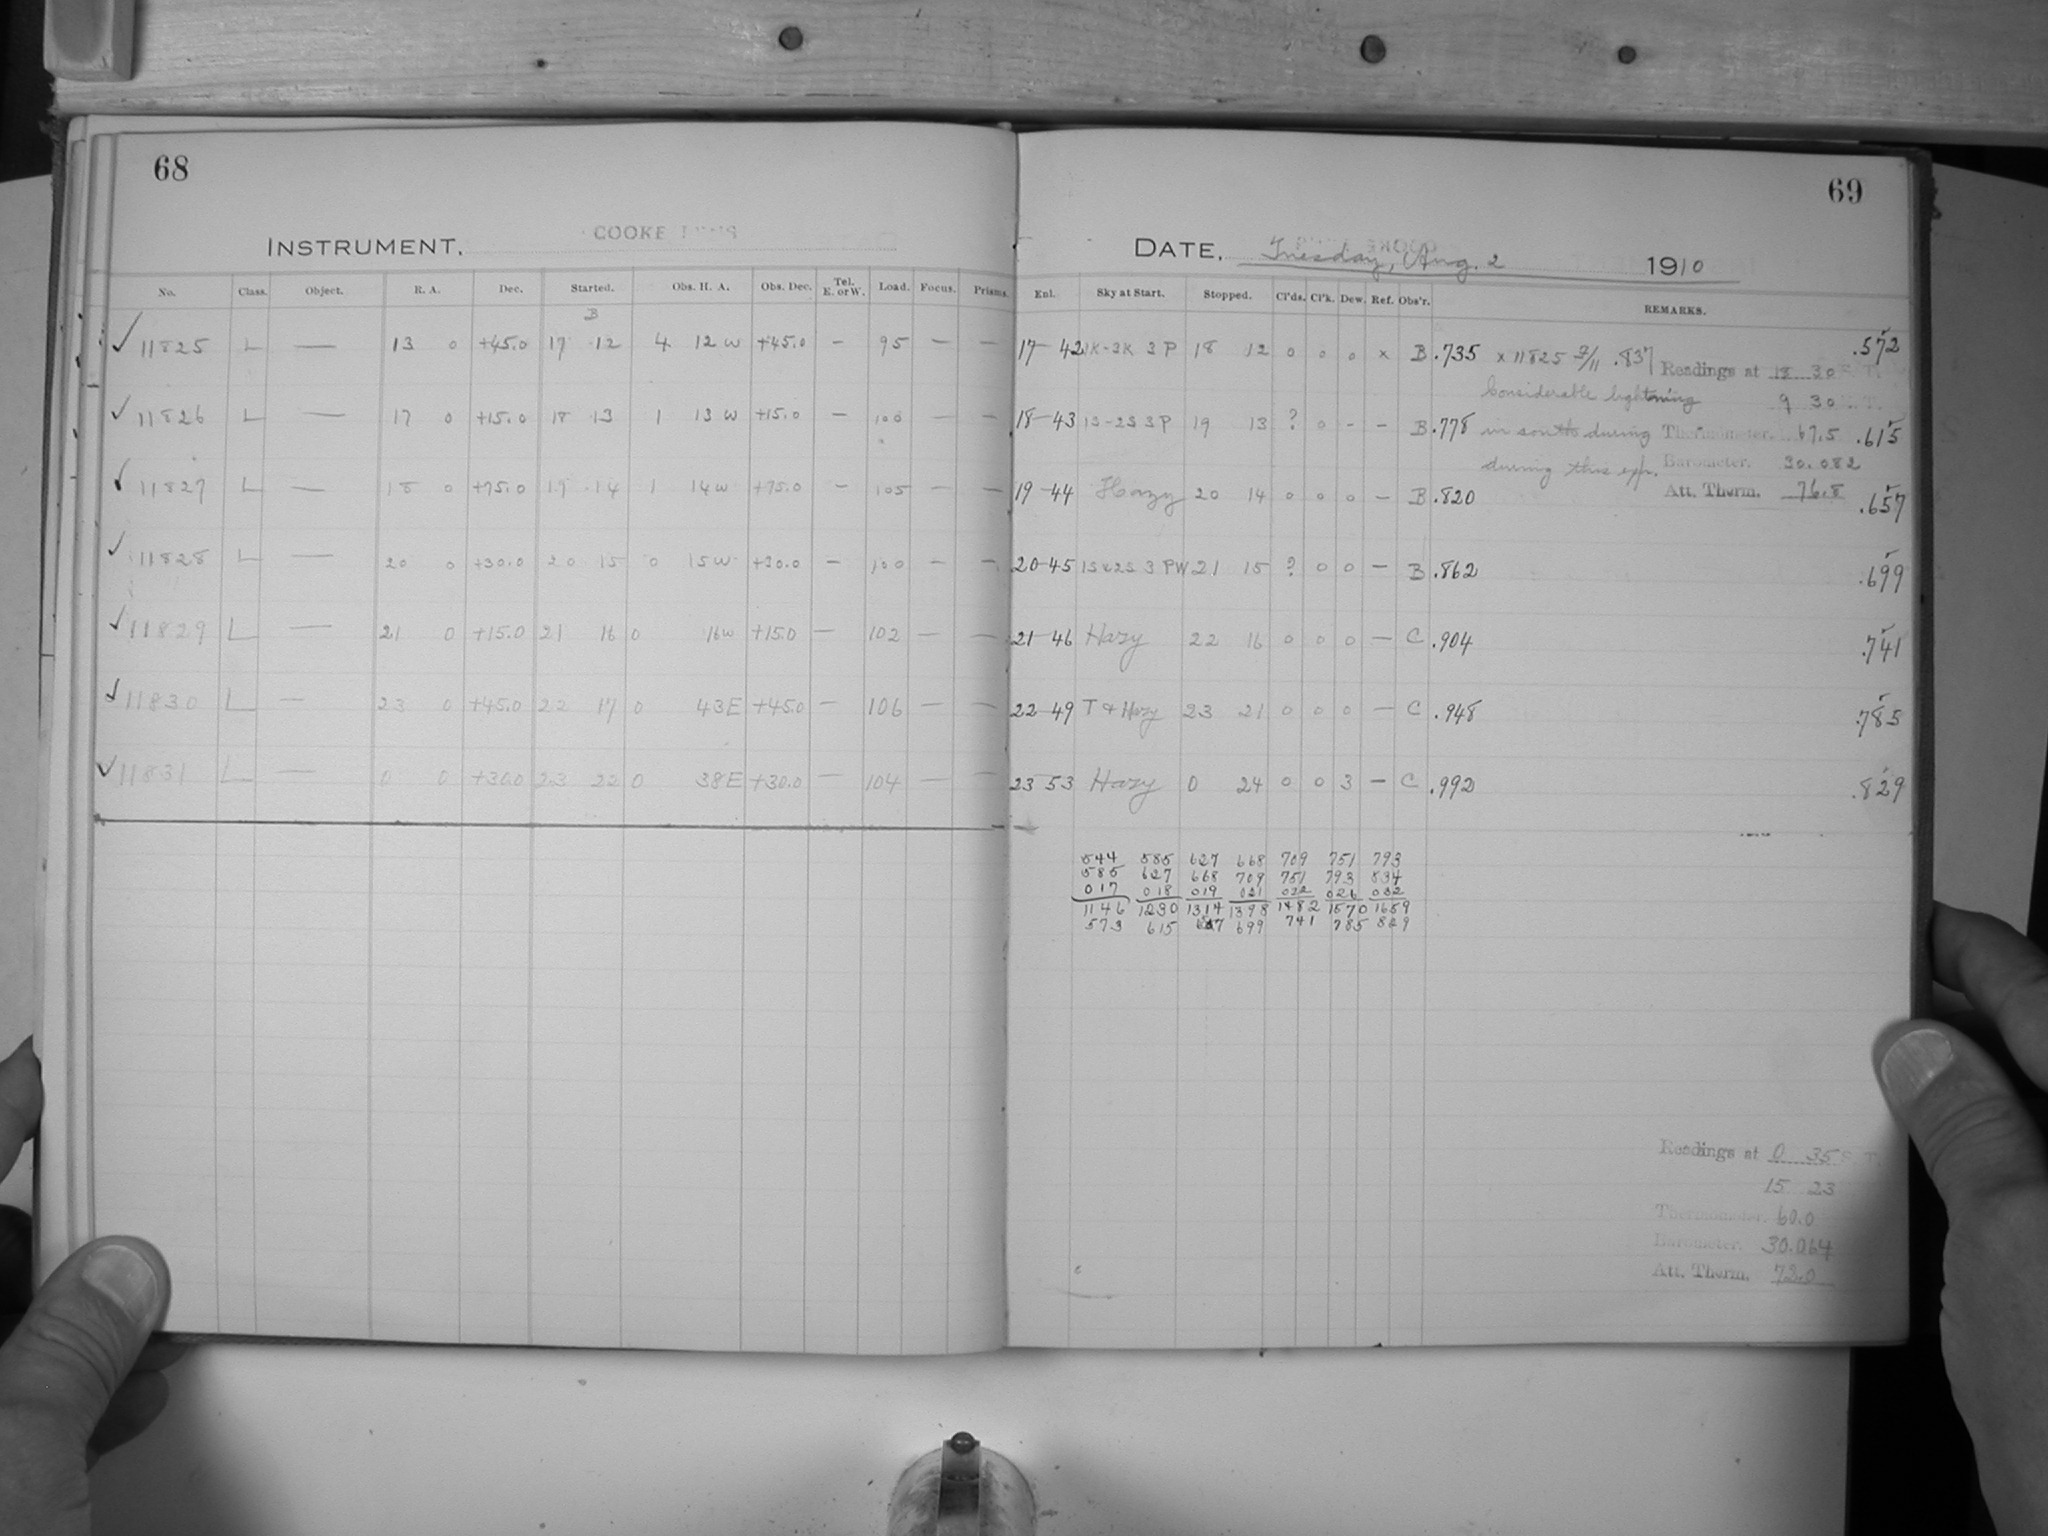 68
INSTRUMENT. COOKE LENS
No. Class. Object. R. A. Dec. Started. Obs. H. A. Obs. Dec. Tel. E. or W. Load. Focus. Prisms.
B
✓ 11825 L — 13 0 +45.0 17 12 4 12 W +45.0 — 95 — —
✓ 11826 L — 17 0 +15.0 18 13 1 13 W +15.0 — 100 — —
✓ 11827 L — 18 0 +75.0 19 14 1 14 W +75.0 — 105 — —
✓ 11828 L — 20 0 +30.0 20 15 0 15 W +30.0 — 100 — —
✓ 11829 L — 21 0 +15.0 21 16 0 16 W +15.0 — 102 — —
✓ 11830 L — 23 0 +45.0 22 17 0 43 E +45.0 — 106 — —
✓ 11831 L — 0 0 +30.0 23 22 0 38 E +30.0 — 104 — —
69
DATE. Tuesday, Aug. 2 1910
Enl. Sky at Start. Stopped. Cl'ds. Cl'k. Dew. Ref. Obs'r. REMARKS.
17-42 1K-2K 3 P 18 12 0 0 0 x B .735 x 11825 .837 .572
Readings at 18 30 S. T.
Considerable lightning 9 30
18-43 1S-2S 3 P 19 13 ? 0 - - B .778 in south during Thermometer. 67.5 .615
during this exp. Barometer. 30.082
19-44 Hazy 20 14 0 0 0 - B .820 Att. Therm. 76.8 .657
20-45 3 PW 21 15 ? 0 0 - B .862 .699
21-46 Hazy 22 16 0 0 0 - C .904 .741
22-49 T & Hazy 23 21 0 0 0 - C .948 .785
23 53 Hazy 0 24 0 0 3 - C .992 .829
544 585 627 668 709 751 793
585 627 668 709 751 793 834
017 018 019 021 022 026 032
1146 1230 1314 1398 1482 1570 1659
573 615 657 699 741 785 829
Readings at 0 35 S. T.
15 23
Thermometer. 60.0
Barometer. 30.064
Att. Therm. 73.0